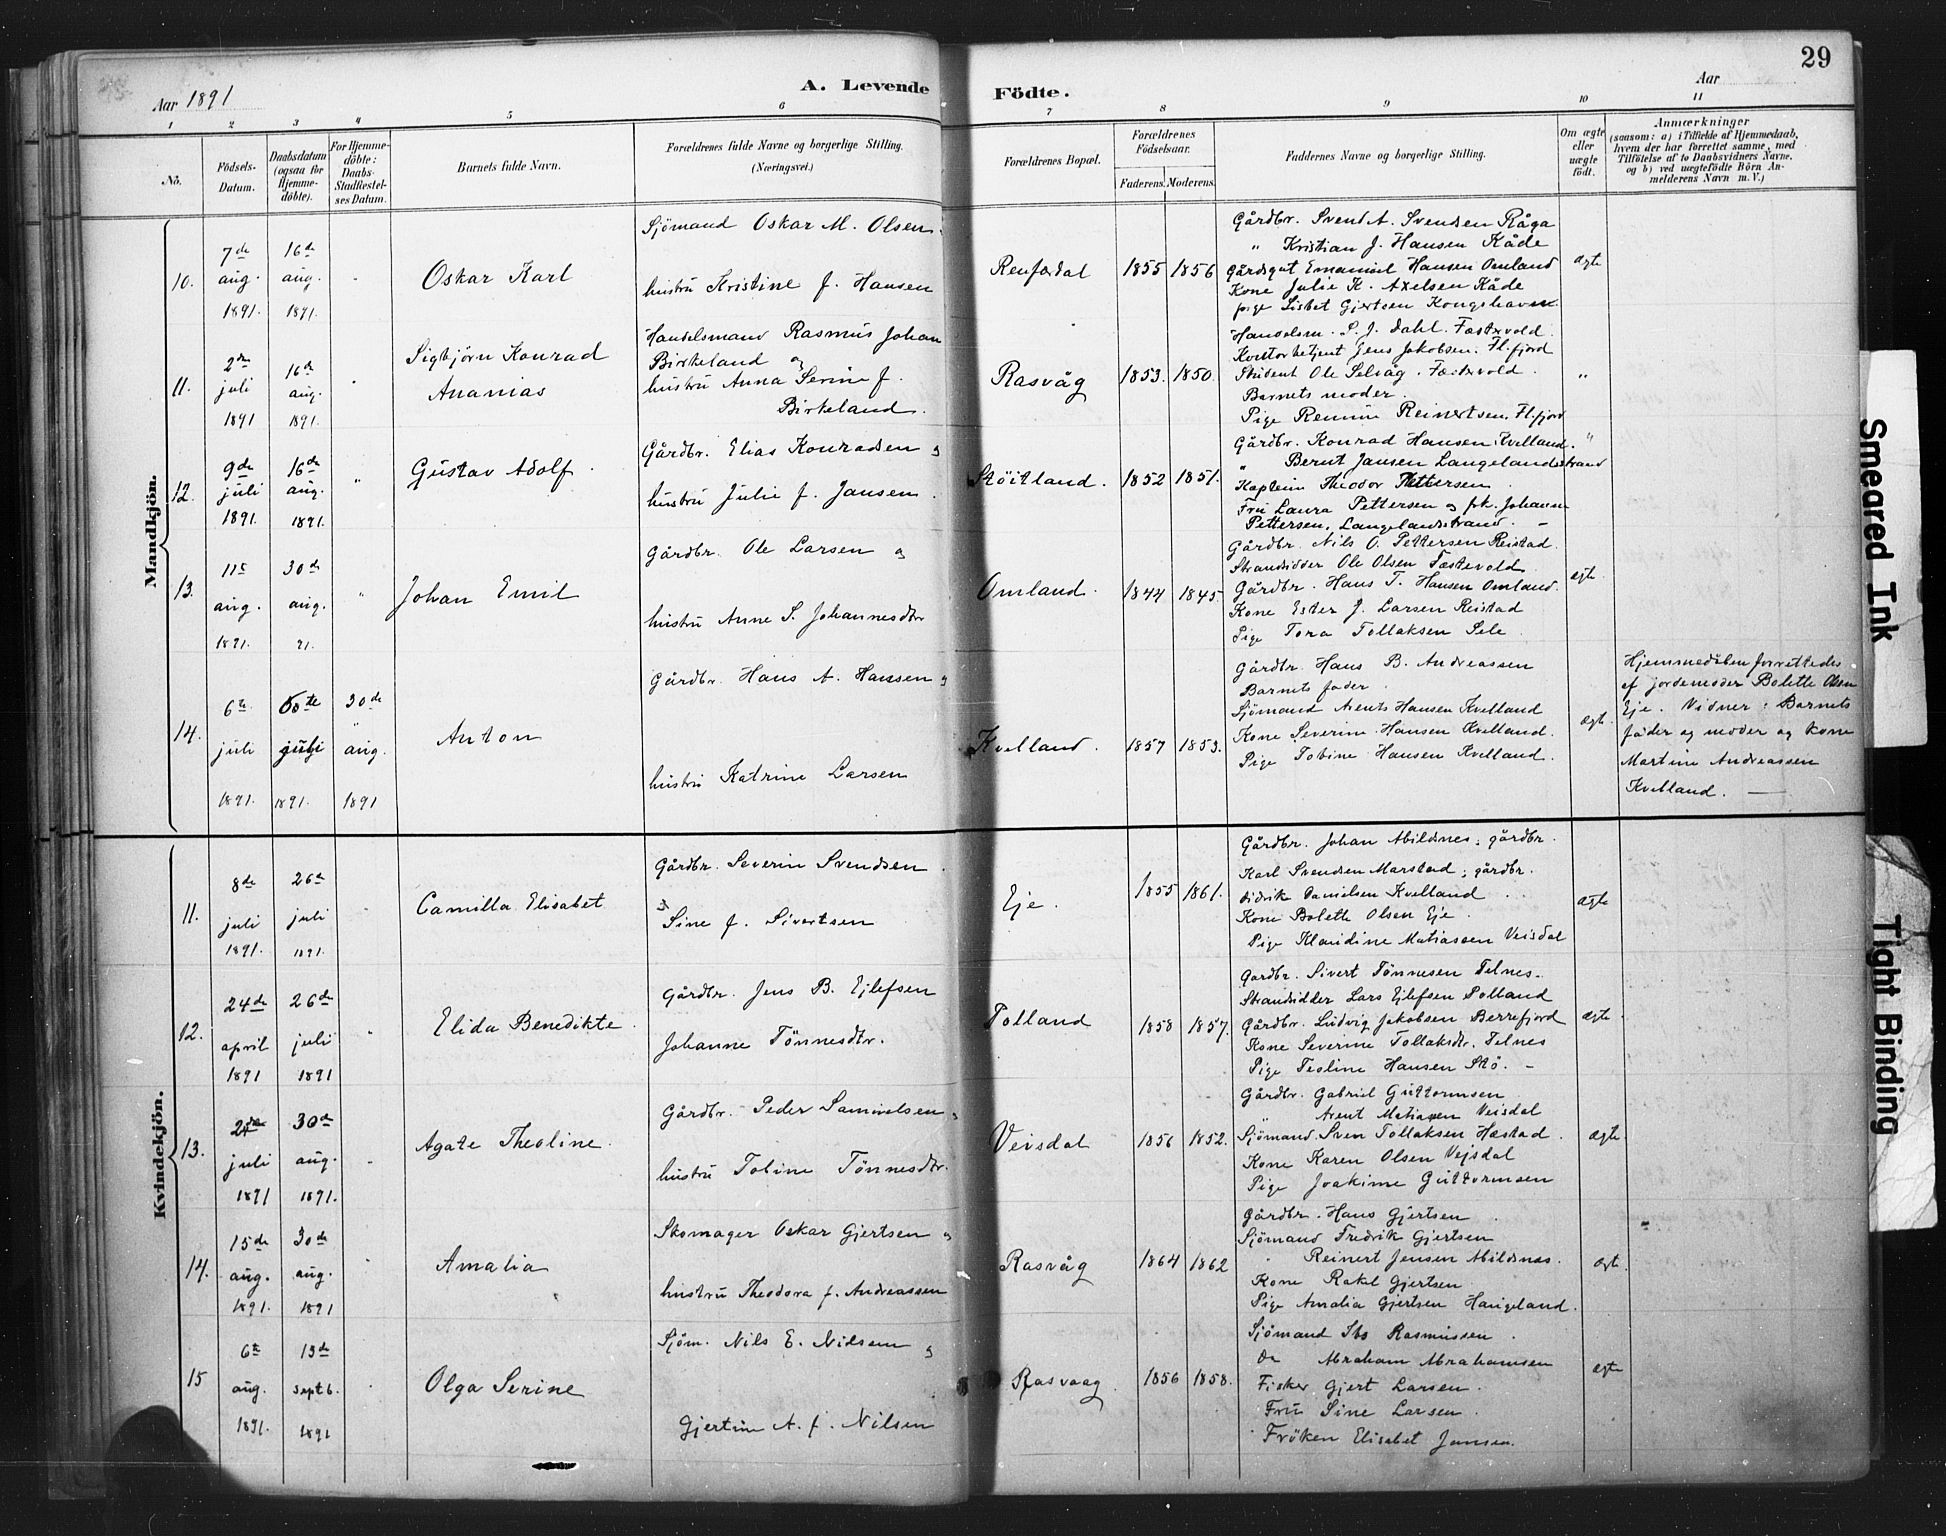 Aar 1891
A. Levende Födte.
Aar
29
1 2 3 4 5 6 7 8 9 10 11
No.
Födsels-Datum.
Daabsdatum (ogsaa for Hjemme-döbte).
For Hjemme-döbte: Daabs-Stadfæstel-ses Datum.
Barnets fulde Navn.
Forældrenes fulde Navne og borgerlige Stilling.
(Næringsvei.)
Forældrenes Bopæl.
Forældrenes Födselsaar.
Faderens. Moderens.
Faddernes Navne og borgerlige Stilling.
Om ægte eller uægte födt.
Anmærkninger
(saasom: a) i Tilfælde af Hjemmedaab,
hvem der har forrettet samme, med
Tilföielse af to Daabsvidners Navne,
og b) ved uægtefödte Börn An-
melderens Navn m. V.)
Mandkjön.
10.
7de aug. 1891.
16de aug. 1891.
Oskar Karl
Sjömand Oskar M. Olsen
hustru Kristine f. Hansen
Renfædal
1855 1856
Gårdbr. Svend A. Svendsen Råga
" Kristian J. Hansen Kåde
Gårdsgut Emanuel Hansen Omland
Kone Julie K. Axelsen Kåde
pige Lisbet Gjertsen Kongshavn
ægte
11.
2den juli 1891
16de aug. 1891.
Sigbjörn Konrad
Ananias
Handelsmand Rasmus Johan
Birkeland og
hustru Anna Serine f.
Birkeland.
Rasvåg
1853. 1850.
Handelsm. P. J. Dahl. Fæstevold.
Kontorbetjent Jens Jakobsen. Fl.fjord
Student Ole Selvåg. Fæstevold.
Barnets moder.
Pige Remine Reinertsen, Fl.fjord
"
12.
9de juli 1891.
16de aug. 1891.
"
Gustav Adolf.
Gårdbr. Elias Konradsen og
hustru Julie f. Jansen.
Stöitland.
1852 1851.
Gårdbr. Konrad Hansen Kvelland.
" Bernt Jansen Langelandsstrand
Kaptein Theodor Pettersen
Fru Laura Pettersen og frk. Johanne
Pettersen, Langelandsstrand. –
"
13.
11te aug. 1891.
30de aug. 91.
"
Johan Emil
Gårdbr. Ole Larsen og
hustru Anne S. Johannesdtr
Omland.
1844 1845.
Gårdbr. Nils O. Pettersen Reistad.
Strandsidder Ole Olsen Fæstevold.
Gårdbr. Hans T. Hansen Omland.
Kone Ester J. Larsen Reistad
Pige Tora Tollaksen Sele.
ægte.
14.
6te juli 1891.
juli 1891.
30de aug. 1891
Anton
Gårdbr. Hans A. Hansen og
hustru Katrine Larsen
Kvelland.
1857 1853.
Gårdbr. Hans B. Andreassen
Barnets fader.
Sjömand Arents Hansen Kvelland
Kone Severine Hansen Kvelland.
Pige Tobine Hansen Kvelland.
ægt.
Hjemmedåben forrettedes
af jordemoder Bolette Olsen
Eje. Vidner: Barnets
fader og moder og kone
Martine Andreassen
Kvelland. —
Kvindekjön.
11.
8de juli 1891.
26de juli 1891.
Camilla Elisabet
Gårdbr. Severin Svendsen
og
Sine f. Sivertsen
Eje.
1855 1861.
Gårdbr. Johan Abildsnes; gårdbr.
Karl Svendsen Marstad; gårdbr.
Didrik Danielsen Kvelland
Kone Bolette Olsen Eje.
Pige Klaudine Matiassen Veisdal
ægte
12.
24de april 1891
26de juli 1891
"
Elida Benedikte.
Gårdbr. Jens B. Ejlefsen
Johanne Tönnesdtr.
Tolland
1858 1857.
Gårdbr. Sivert Tönnesen Telnes.
Strandsidder Lars Ejlefsen Tolland
Gårdbr. Ludvig Jakobsen Berrefjord
Kone Severine Tollaksdtr. Telnes
Pige Teoline Hansen Stö. –
ægte.
13.
juli 1891
30de aug. 1891.
Agate Theoline.
Gårdbr. Peder Samuelsen og
hustru Tobine Tönnesdtr.
Veisdal
1856 1852.
Gårdbr. Gabriel Guttormsen
" Arent Matiasen Veisdal
Sjömand Sven Tollaksen Hæstad.
Kone Karen Olsen Vejsdal
Pige Joakime Guttormsen
ægte.
14.
15de aug. 1891.
30de aug. 1891
"
Amalia
Skomager Oskar Gjertsen og
hustru Theodora f. Andreassen
Rasvåg
1864 1862
Gårdbr. Hans Gjertsen
Sjömand Fredrik Gjertsen
" Reinert Jensen Abildsnes.
Kone Rakel Gjertsen
Pige Amalia Gjertsen Haugeland.
ægt.
15
6te aug. 1891.
13de septb. 1891
Olga Serine
Sjöm. Nils E. Nilsen og
Gjertine A. f. Nilsen
Rasvaag.
1856 1858.
Sjömand Rasmussen
Do Abraham Abrahamsen
Fisker Gjert Larsen.
Fru Sine Larsen.
Fröken Elisabet Jansen.
ægte
Smeared Ink
Tight Binding